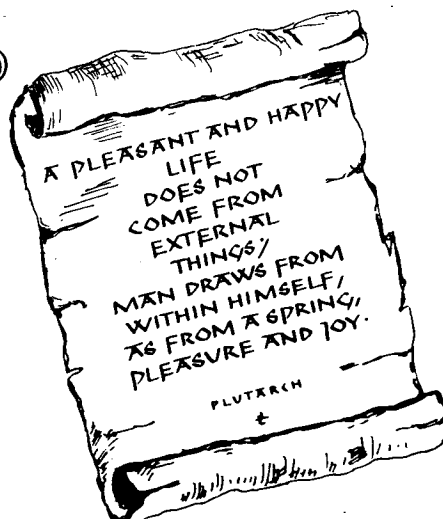 A PLEASANT AND HAPPY
LIFE
DOES NOT
COME FROM
EXTERNAL
THINGS;
MAN DRAWS FROM
WITHIN HIMSELF,
AS FROM A SPRING,
PLEASURE AND JOY.
PLUTARCH